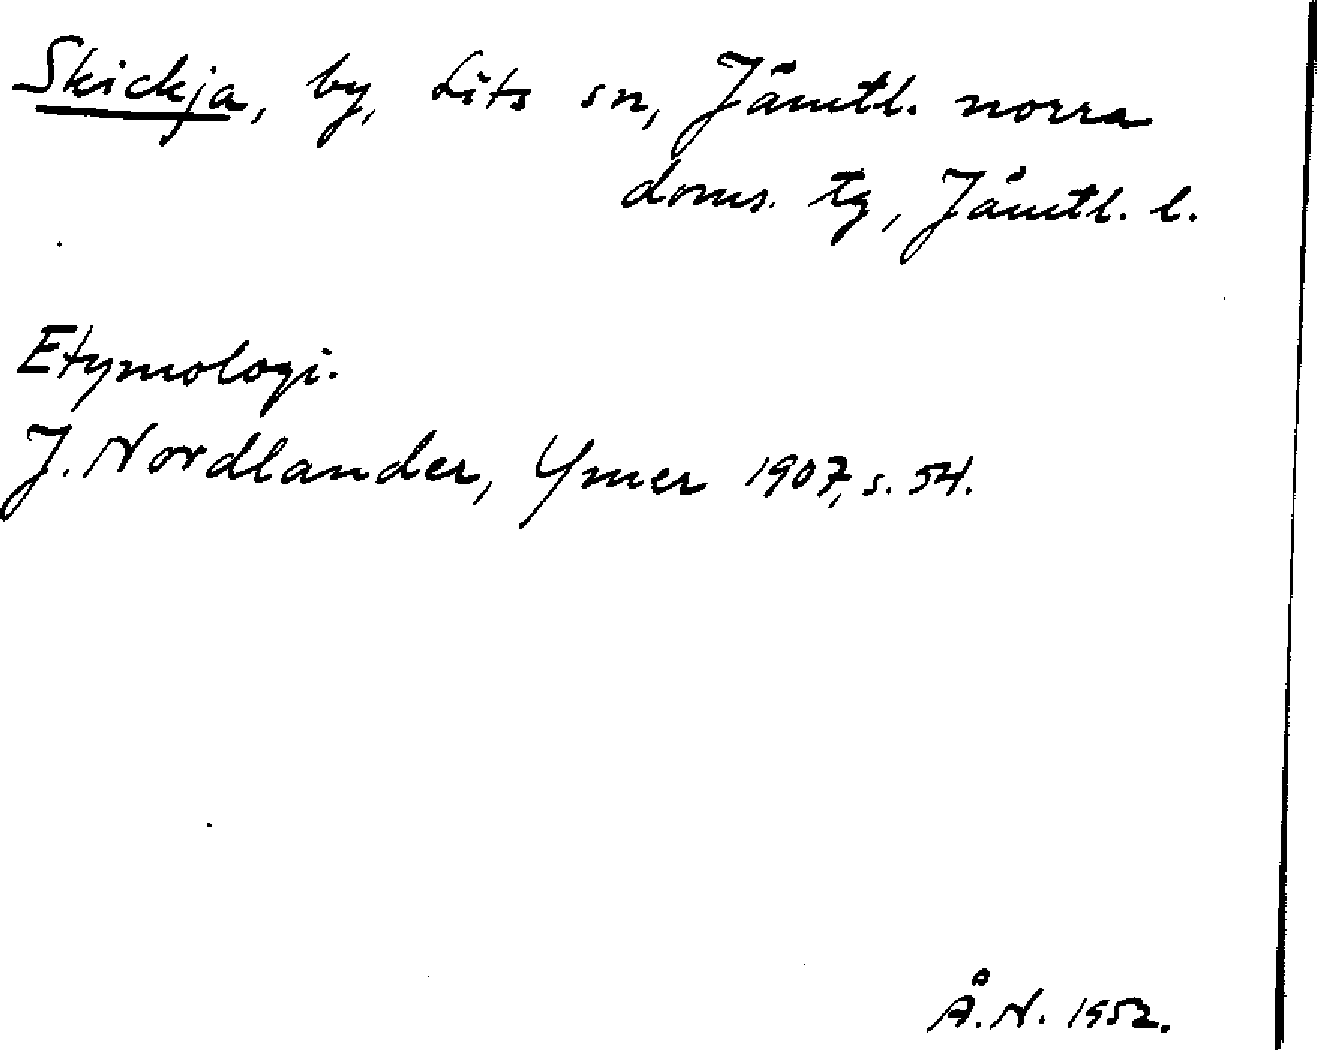 Skickja, by, Lits sn, Jämtl. norra
doms. tg, Jämtl. l.
Etymologi.
J. Nordlander, Ymer 1907, s. 54.
Å.N. 1952.